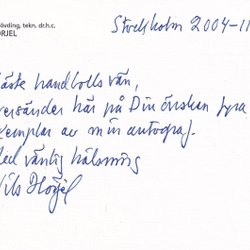 övding, tekn. dr.h.c.
ORJEL
Stockholm 2004-11
äste handbolls vän,
versänder här på Din önskan fyra
xemplar av min autograf.
Med vänlig hälsning
Nils Hörjel